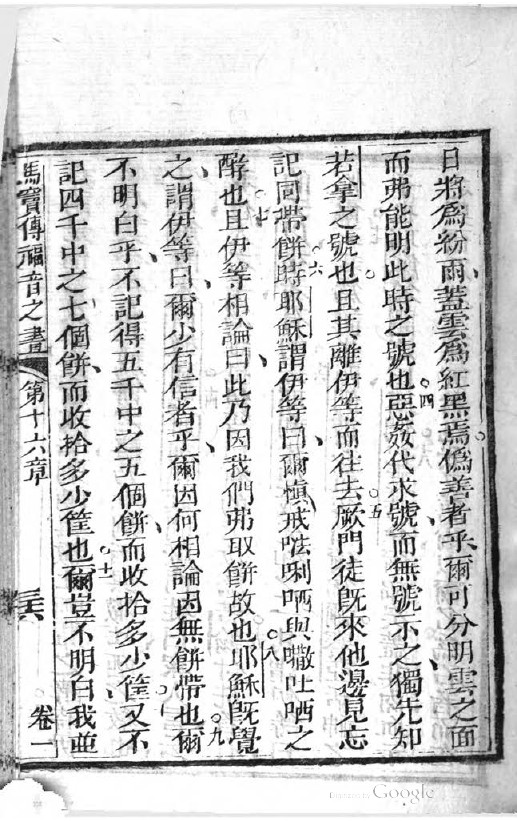 日將爲紛雨蓋雲爲紅黑焉僞善者乎爾可分明雲之面
而弗能明此時之號也惡姦代求號而無號示之獨先知
若拿之號也且其離伊等而往去厥門徒旣來他邊見忘
記同帶餅時耶穌謂伊等曰爾愼戒㗒唎哂與𠿪吐哂之
酵也且伊等相論曰此乃因我們弗取餅故也耶穌旣覺
之謂伊等曰爾少有信者乎爾因何相論因無餅帶也爾
不明白乎不記得五千中之五個餅而收拾多少筐又不
記四千中之七個餅而收拾多少筐也爾豈不明白我並
馬竇傳福音之書 第十六章 三六 卷一
四
五
六
七
八
九
十
十一
Google